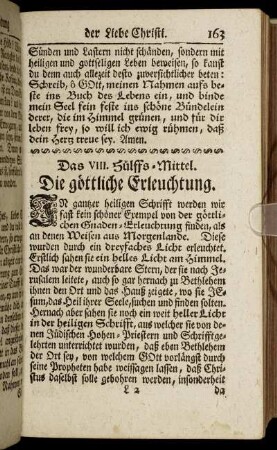 der Liebe Christi. 163
Sünden und Lastern nicht schänden, sondern mit
heiligen und gottseligen Leben beweisen, so kanst
du denn auch allezeit desto zuversichtlicher beten:
Schreib, ô GOtt, meinen Nahmen aufs be-
ste ins Buch des Lebens ein, und binde
mein Seel fein feste ins schöne Bündelein
derer, die im Himmel grünen, und für dir
leben frey, so will ich ewig rühmen, daß
dein Hertz treue sey. Amen.
Das VIII. Hülffs-Mittel.
Die göttliche Erleuchtung.
IN gantzer heiligen Schrifft werden wir
fast kein schöner Exempel von der göttli-
chen Gnaden-Erleuchtung finden, als
an denen Weisen aus Morgenlande. Diese
wurden durch ein dreyfaches Licht erleuchtet,
Erstlich sahen sie ein helles Licht am Himmel.
Das war der wunderbare Stern, der sie nach Je-
rusalem leitete, auch so gar hernach zu Bethlehem
ihnen den Ort und das Hauß zeigete, wo sie JE-
sum, das Heil ihrer Seele, suchen und finden solten.
Hernach aber sahen sie noch ein weit heller Licht
in der heiligen Schrifft, aus welcher sie von de-
nen Jüdischen Hohen-Priestern und Schrifftge-
lehrten unterrichtet wurden, daß eben Bethlehem
der Ort sey, von welchem GOtt vorlängst durch
seine Propheten habe weissagen lassen, daß Chri-
stus daselbst solle gebohren werden, insonderheit
L 2 da